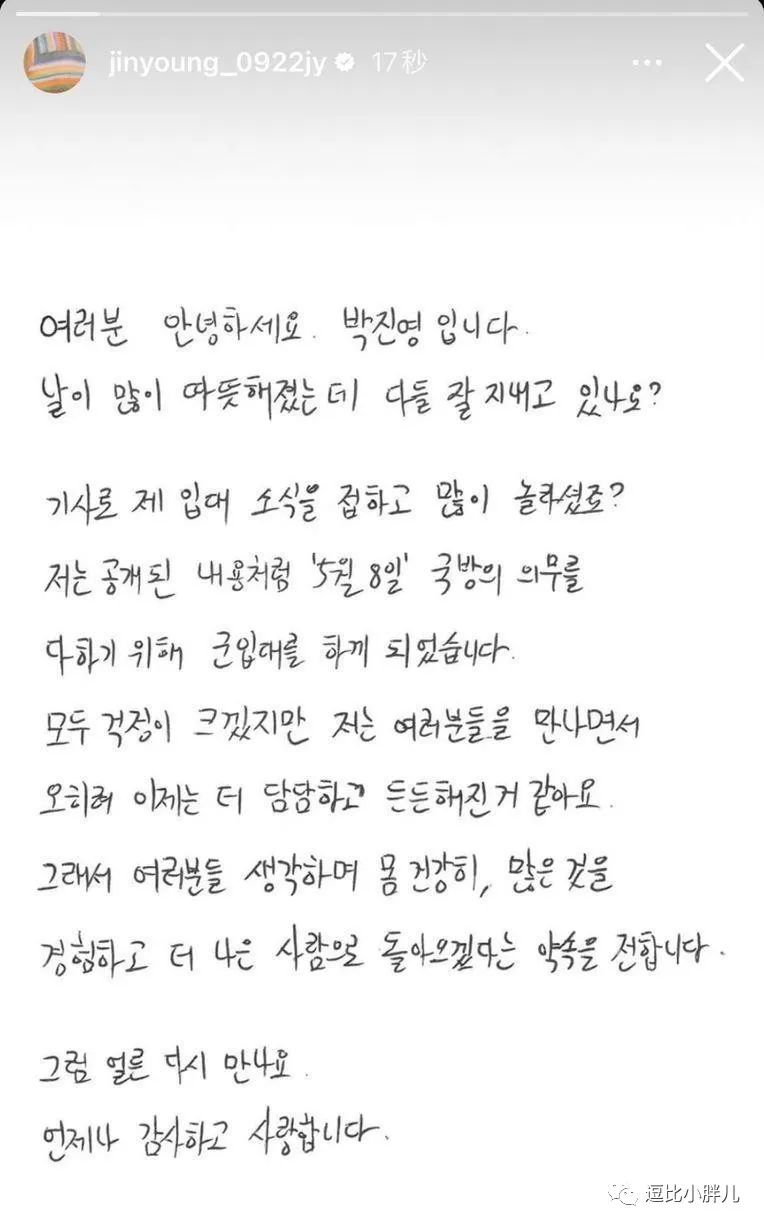 jinyoung_0922jy 17秒
여러분 안녕하세요. 박진영입니다.
날이 많이 따뜻해졌는데 다들 잘 지내고 있나요?
기사로 제 입대 소식을 접하고 많이 놀라셨죠?
저는 공개된 내용처럼 '5월 8일' 국방의 의무를
다하기 위해 군입대를 하게 되었습니다.
모두 걱정이 크겠지만 저는 여러분들을 만나면서
오히려 이제는 더 담담하고 든든해진거 같아요.
그래서 여러분들 생각하며 몸 건강히, 많은 것을
경험하고 더 나은 사람으로 돌아오겠다는 약속을 전합니다.
그럼 얼른 다시 만나요.
언제나 감사하고 사랑합니다.
逗比小胖儿